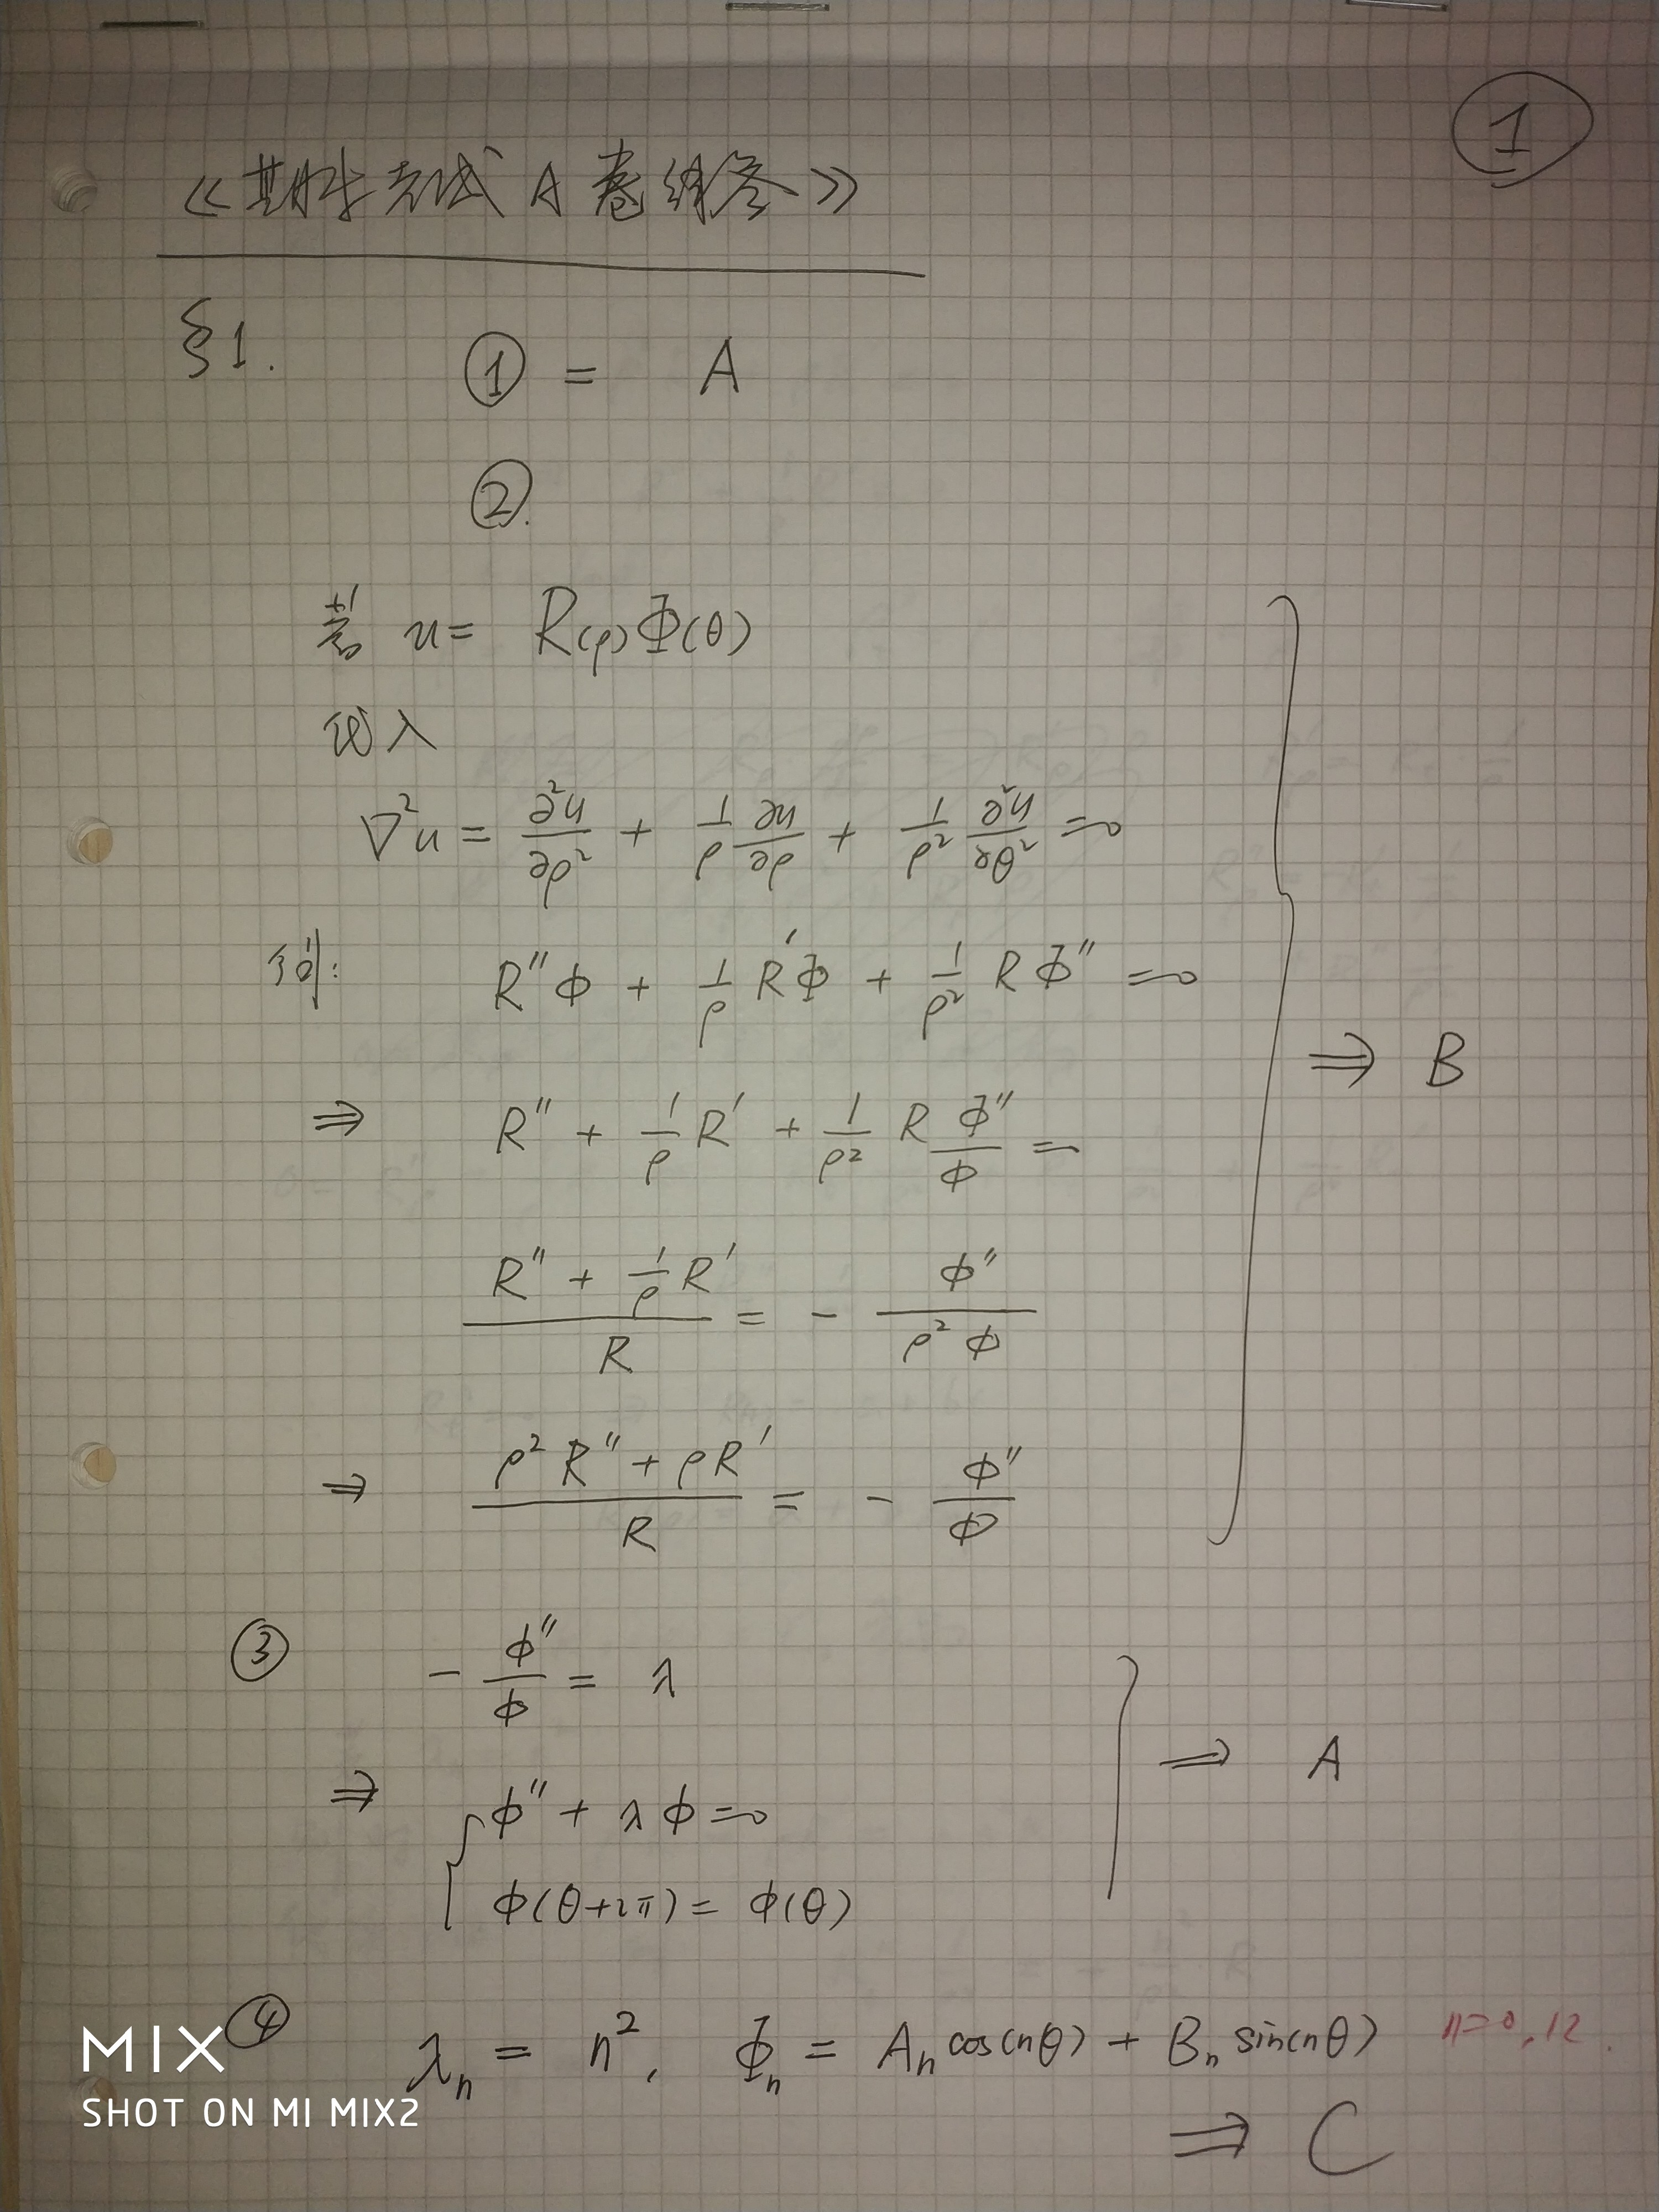 ①
《期末考试 A 卷答案》
§1. ① = A
②.
若 u = R(ρ)Φ(θ)
代入
∇²u = ∂²u/∂ρ² + 1/ρ ∂u/∂ρ + 1/ρ² ∂²u/∂θ² = 0
则: R''Φ + 1/ρ R'Φ + 1/ρ² RΦ'' = 0
⇒ B
⇒ R'' + 1/ρ R' + 1/ρ² R Φ''/Φ = 0
(R'' + 1/ρ R')/R = - Φ''/(ρ²Φ)
⇒ (ρ²R'' + ρR')/R = - Φ''/Φ
③ - Φ''/Φ = λ
⇒ A
⇒ { Φ'' + λΦ = 0
Φ(θ+2π) = Φ(θ)
④ λₙ = n², Φₙ = Aₙ cos(nθ) + Bₙ sin(nθ) n=0,12.
⇒ C
MIX
SHOT ON MI MIX2